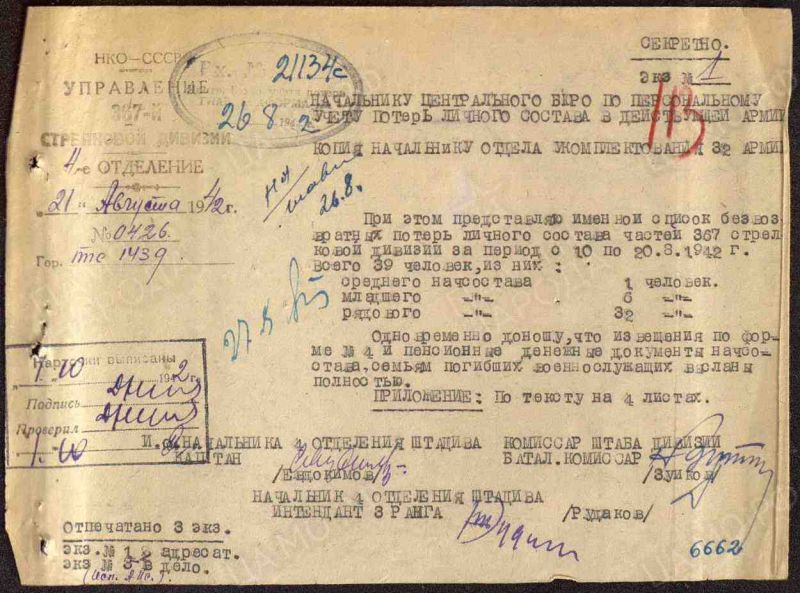 СЕКРЕТНО.
ЭКЗ № 1
НКО—СССР
УПРАВЛЕНИЕ
367-й
СТРЕЛКОВОЙ ДИВИЗИИ
4-е ОТДЕЛЕНИЕ
„21" Августа 1942г.
№ 0426
Гор. ппс 1439
Вх. № 21134с
26 8 1942
НАЧАЛЬНИКУ ЦЕНТРАЛЬНОГО БЮРО ПО ПЕРСОНАЛЬНОМУ
УЧЕТУ ПОТЕРЬ ЛИЧНОГО СОСТАВА В ДЕЙСТВУЮЩЕЙ АРМИИ
КОПИЯ НАЧАЛЬНИКУ ОТДЕЛА УКОМПЛЕКТОВАНИЯ 32 АРМИИ
26.8.
При этом представляю именной список безвоз-
вратных потерь личного состава частей 367 стрел-
ковой дивизии за период с 10 по 20.8.1942 г.
всего 39 человек, из них :
среднего начсостава 1 человек.
младшего -"- 6 -"-
рядового -"- 32 -"-
27 8
Одновременно доношу, что извещения по фор-
ме № 4 и пенсионные денежные документы начсо-
става, семьям погибших военнослужащих высланы
полностью.
ПРИЛОЖЕНИЕ: По тексту на 4 листах.
Карточки выписаны
1.10 1942г.
Подпись
Проверил
1.10
И.О. НАЧАЛЬНИКА 4 ОТДЕЛЕНИЯ ШТАДИВА
КАПИТАН
/Евдокимов/
КОМИССАР ШТАБА ДИВИЗИИ
БАТАЛ. КОМИССАР
/Зуйков/
НАЧАЛЬНИК 4 ОТДЕЛЕНИЯ ШТАДИВА
ИНТЕНДАНТ 3 РАНГА
/Рудаков/
Отпечатано 3 экз.
экз. № 1-2 адресат.
экз № 3-в дело.
6662